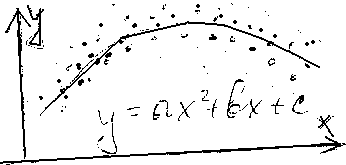 y
y = ax²+bx+c
x